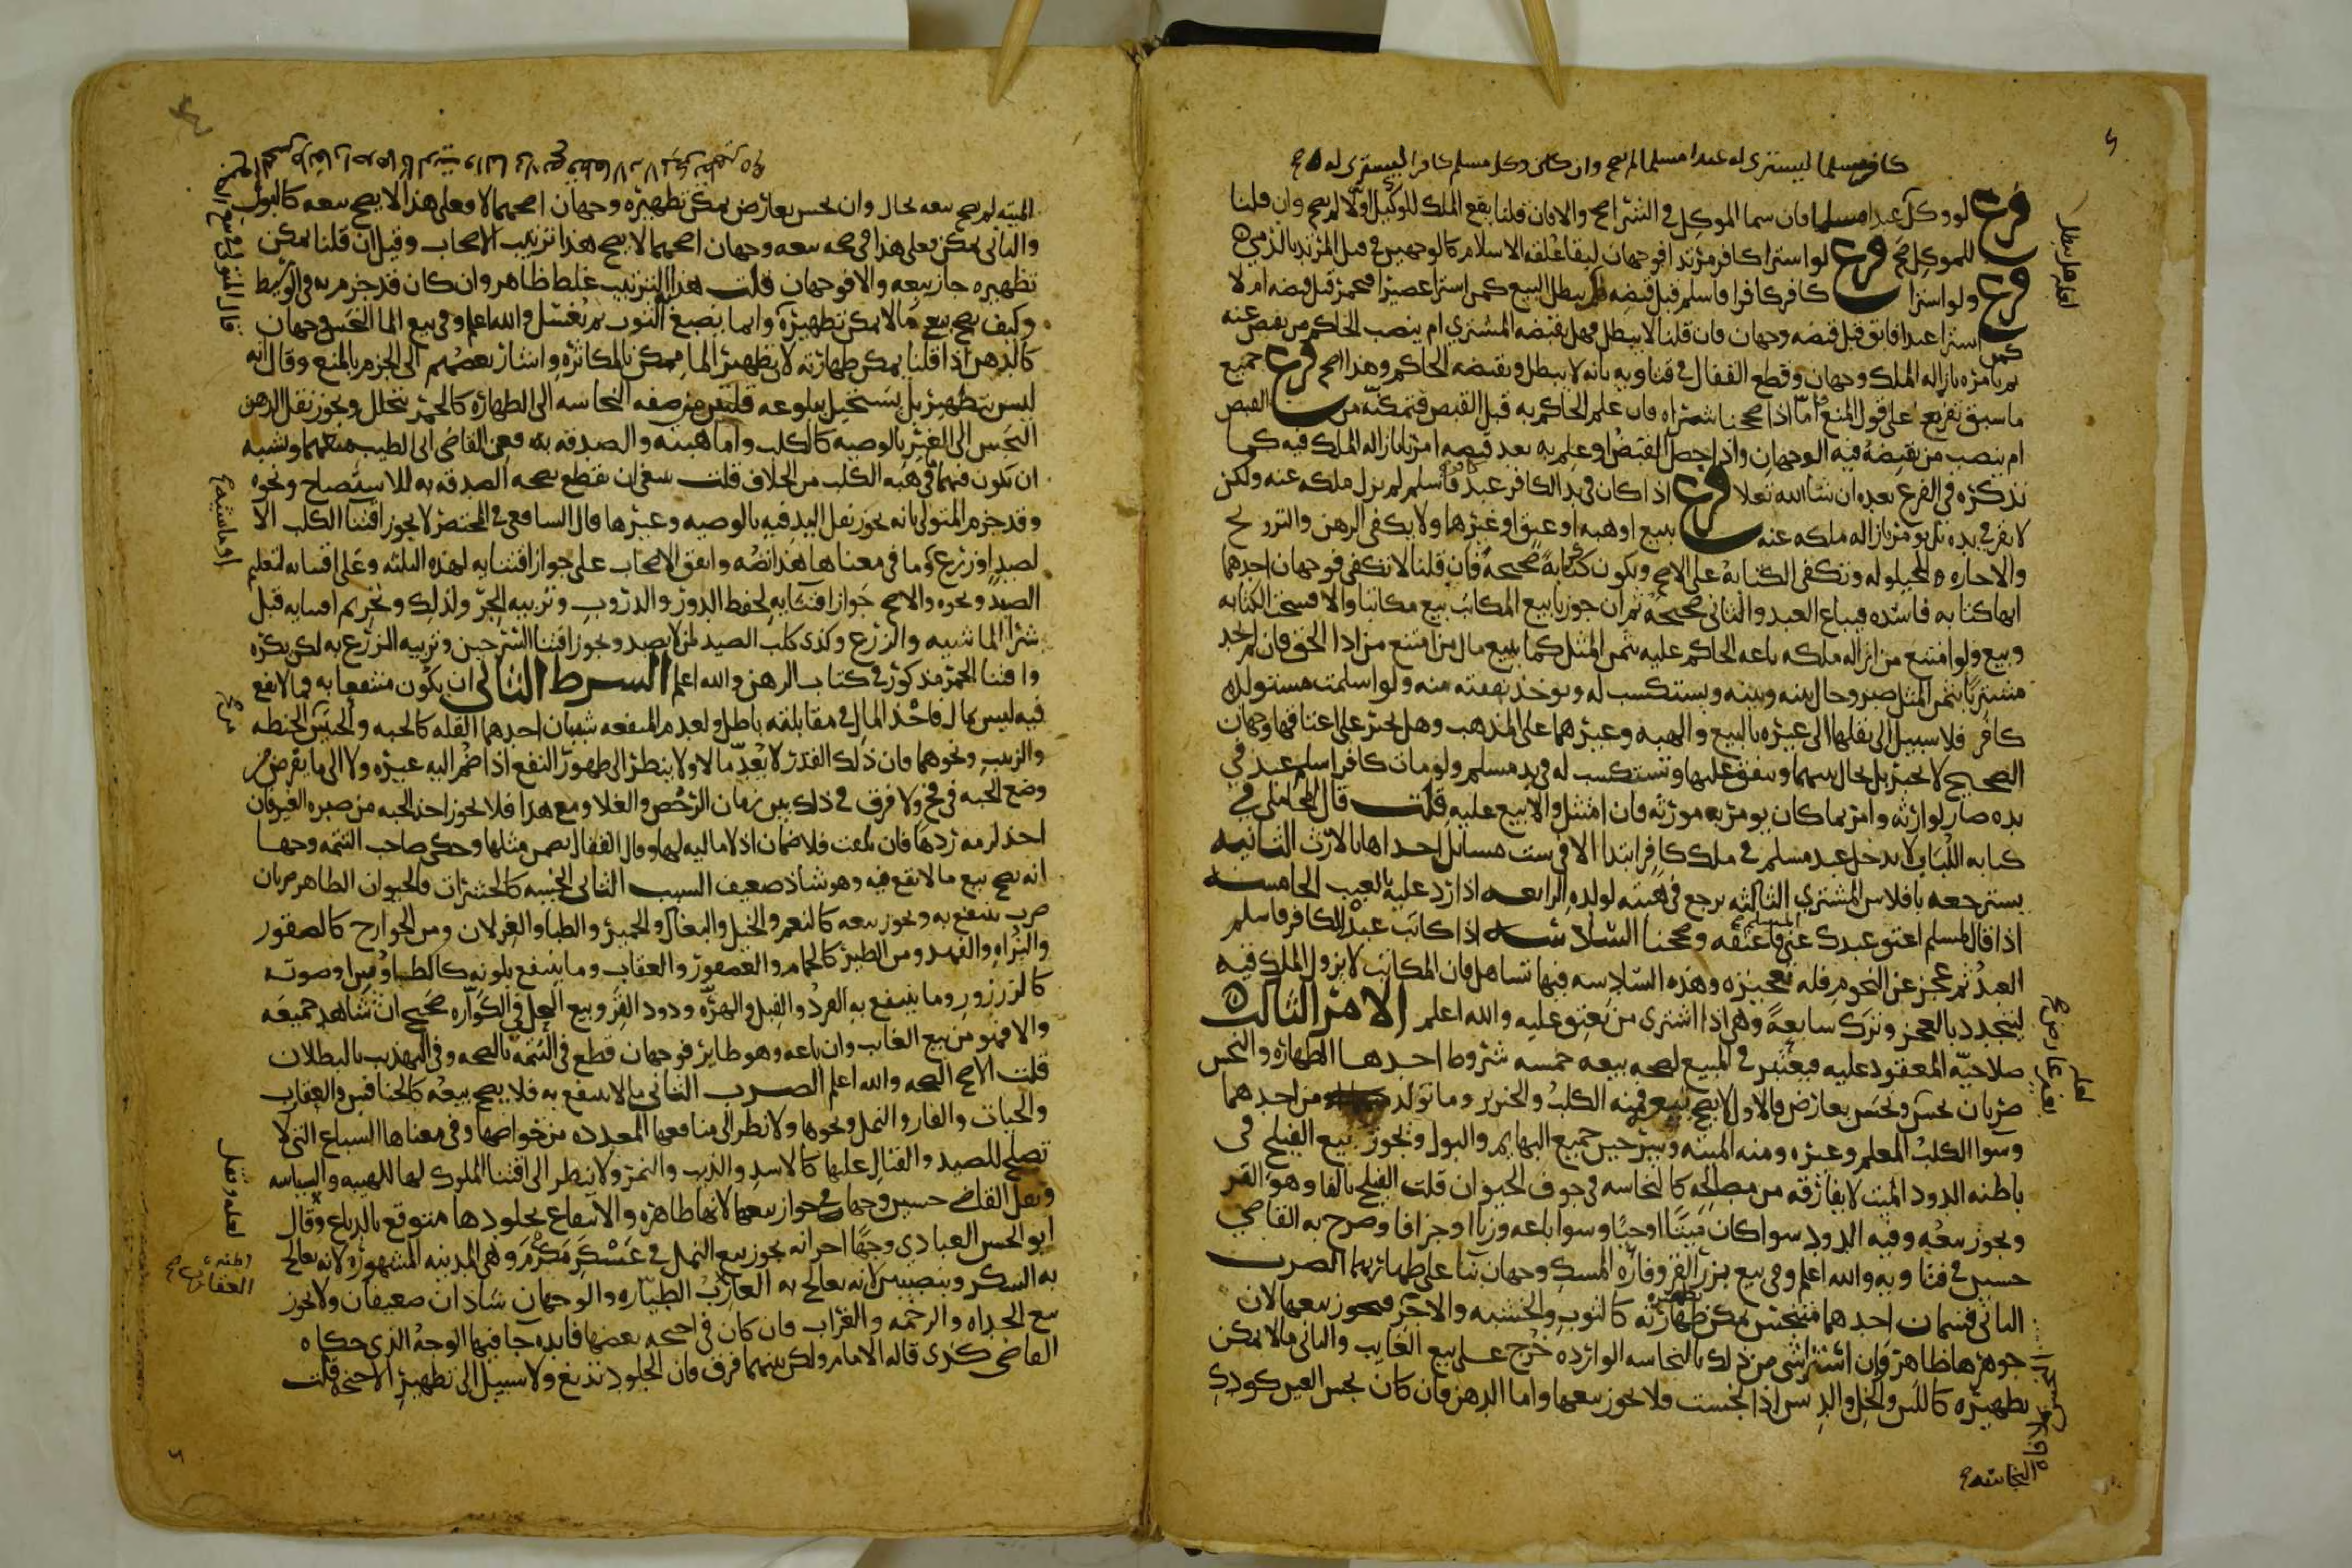 كافر مسلما ليشتري له عبدا مسلما لم يصح وان كان وكل مسلم كافرا ليشتري له
فرع لو وكل عبدا مسلما فان سما الموكل في الشرا صح والا فان قلنا يقع الملك للوكيل اولا لم يصح وان قلنا
للموكل صح فرع لو اشترا كافر مرتدا فوجهان لبقا علقه الاسلام كالوجهين في قتل المرتد بالذمي
فرع ولو اشترا كافر كافرا فاسلم قبل قبضه هل يبطل البيع كمن اشترا عصيرا فتخمر قبل قبضه ام لا
كمن اشترا عبدا فابق قبل قبضه وجهان فان قلنا لا يبطل فهل يقبضه المشتري ام ينصب الحاكم من يقبض عنه
ثم يامره بازاله الملك وجهان وقطع القفال في فتاويه بانه لا يبطل ويقبضه الحاكم وهذا اصح فرع جميع
ما سبق تفريع على قول المنع اما اذا صححنا شراه فان علم الحاكم به قبل القبض فتمكنه من القبض
ام ينصب من يقبضه فيه الوجهان واذا حصل القبض او علم به بعد قبضه امرنا بازاله الملك فيه كما
نذكره في الفرع بعده ان شا الله تعلا فرع اذا كان في يد الكافر عبد فاسلم لم يزل ملكه عنه ولكن
لا يقر في يده بل يومر بازاله ملكه عنه ببيع او هبه او عتق او غيرها ولا يكفي الرهن والتزويج
والاجاره والحيلوله وتكفي الكتابه على الاصح وتكون كتابة صحيحة فان قلنا لا تكفي فوجهان احدهما
انها كتابه فاسده فيباع العبد والثاني صحيحة ثم ان جوزنا بيع المكاتب بيع مكاتبا والا فسخت الكتابه
وبيع ولو امتنع من ازاله ملكه باعه الحاكم عليه بثمن المثل كما يبيع مال من امتنع من ادا الحق فان لم نجد
مشتريا بثمن المثل صبر وحال بينه وبينه ويستكسب له وتوخذ نفقته منه ولو اسلمت مستولده
كافر فلا سبيل الى نقلها الى غيره بالبيع والهبه وغيرهما على المذهب وهل يجبر على اعتاقها وجهان
الصحيح لا يجبر بل يحال بينهما وينفق عليها وتستكسب له في يد مسلم ولو مات كافر اسلم عبد في
يده صار لوارثه وامر بما كان يومر به مورثه فان امتثل والا بيع عليه قلت قال المحاملي في
كتابه اللباب لا يدخل عبد مسلم في ملك كافر ابتدا الا في ست مسائل احداها بالارث الثانيه
يسترجعه بافلاس المشتري الثالثه يرجع في هبته لولده الرابعه اذا رد عليه بالعيب الخامسه
اذا قال لمسلم اعتق عبدك عني فاعتقه وصححنا السادسه اذا كاتب عبده الكافر فاسلم
العبد ثم عجز عن النجوم فله تعجيزه وهذه السادسه فيها تساهل فان المكاتب لا يزول الملك فيه
ليتجدد بالعجز وترك سابعة وهي اذا اشترى من يعتق عليه والله اعلم الامر الثالث
صلاحية المعقود عليه فيعتبر في المبيع لصحه بيعه خمسه شروط احدها الطهاره والنجس
ضربان نجس ونجس بعارض فالاول لا يصح بيعه فمنه الكلب والخنزير وما تولد من احدهما
وسوا الكلب المعلم وغيره ومنه الميته وسرجين جميع البهايم والبول ويجوز بيع الفيلج في
باطنه الدود الميت لا بقا رزقه من مصالحه كالنجاسه في جوف الحيوان قلت الفيلج بالفا وهو القز
ويجوز بيعه وفيه الدود سوا كان ميتا او حيا وسوا باعه وزنا او جزافا وصرح به القاضي
حسين في فتاويه والله اعلم وفي بيع بزر القز وفارة المسك وجهان بنا على طهارتهما الضرب
الثاني قسمان احدهما متنجس يمكن طهارته كالثوب والخشبه والاجر فيجوز بيعها لان
جوهرها طاهر فان استتر شي من ذلك بالنجاسه الوارده خرج على بيع الغايب والثاني ما لا يمكن
تطهيره كاللبن والخل والدبس اذا نجست فلا يجوز بيعها واما الدهن فان كان نجس العين كودك
الميته لم يصح بيعه بحال وان نجس بعارض يمكن تطهيره وجهان اصحهما لا فعلى هذا لا يصح بيعه كالبول
والثاني يمكن فعلى هذا في صحه بيعه وجهان اصحهما لا يصح هذا ترتيب الاصحاب وقيل ان قلنا يمكن
تطهيره جاز بيعه والا فوجهان قلت هذا الترتيب غلط ظاهر وان كان قد جزم به في الوسيط
وكيف يصح بيع ما لا يمكن تطهيره وانما يصبغ الثوب ثم يغسل والله اعلم وفي بيع الما النجس وجهان
كالدهن اذا قلنا يمكن طهارته لان تطهير الما ممكن بالمكاثره واشار بعضهم الى الجزم بالمنع وقال انه
ليس بتطهير بل يستحيل ببلوغه قلتين من صفه النجاسه الى الطهاره كالخمر يتخلل ويجوز نقل الدهن
النجس الى الغير بالوصيه كالكلب واما هبته والصدقه به فعن القاضي ابي الطيب منعهما ويشبه
ان يكون فيهما ما في هبه الكلب من الخلاف قلت ينبغي ان يقطع بصحه الصدقه به للاستصباح ونحوه
وقد جزم المتولي بانه يجوز نقل اليد فيه بالوصيه وغيرها قال الشافعي في المختصر لا يجوز اقتنا الكلب الا
لصيد او زرع وما في معناها هذا نصه واتفق الاصحاب على جواز اقتنايه لهذه الثلثه وعلى اقتنايه لتعليم
الصيد ونحوه والاصح جواز اقتنايه لحفظ الدور والدروب وتربيه الجرو لذلك وتحريم اقتنايه قبل
شرا الماشيه والزرع وكذى كلب الصيد لمن لا يصيد ويجوز اقتنا السرجين وتربيه الزرع به لكن يكره
واقتنا الخمر مذكور في كتاب الرهن والله اعلم الشرط الثاني ان يكون منتفعا به فما لا نفع
فيه ليس بمال فاخذ المال في مقابلته باطل ولعدم المنفعه سببان احدهما القله كالحبه والحبتين الحنطه
والزبيب ونحوهما فان ذلك القدر لا يعد مالا ولا ينظر الى ظهور النفع اذا ضم اليه غيره ولا الى ما يفرض من
وضع الحبه في فخ ولا فرق في ذلك بين زمان الرخص والغلا ومع هذا فلا يجوز اخذ الحبه من صبره الغير فان
اخذ لزمه ردها فان تلفت فلا ضمان اذ لا ماليه لها وقال القفال يضمن مثلها وحكى صاحب التتمه وجها
انه يصح بيع ما لا نفع فيه وهو شاذ ضعيف السبب الثاني الخسه كالحشرات فالحيوان الطاهر ضربان
ضرب ينتفع به ويجوز بيعه كالنعم والخيل والبغال والحمير والظبا والغزلان ومن الجوارح كالصقور
والبزاه والفهد ومن الطير كالحمام والعصفور والعقاب وما ينتفع بلونه كالطاوس او صوته
كالزرزور وما ينتفع به القرد والفيل والهره ودود القز وبيع النحل في الكواره صحيح ان شاهد جميعه
والا فهو من بيع الغايب وان باعه وهو طاير فوجهان قطع في التتمة بالصحه وفي التهذيب بالبطلان
قلت الاصح الصحه والله اعلم الضرب الثاني ما لا ينتفع به فلا يصح بيعه كالخنافس والعقارب
والحيات والفار والنمل ونحوها ولا نظر الى منافعها المعدوده من خواصها وفي معناها السباع التي لا
تصلح للصيد والقتال عليها كالاسد والذيب والنمر ولا ينظر الى اقتنا الملوك لها للهيبه والسياسه
ونقل القاضي حسين وجها في جواز بيعها لانها طاهره والانتفاع بجلودها متوقع بالدباغ وقال
ابو الحسن العبادي وجها اخر انه يجوز بيع النمل في عسكر مكرم وهي المدينه المشهوره لانه يعالج
به السكر وبنصيبين لانه يعالج به العقارب الطياره والوجهان شاذان ضعيفان ولا يجوز
بيع الحداه والرخمه والغراب فان كان في اجنحه بعضها فايده جا فيها الوجه الذي حكاه
القاضي كذى قاله الامام ولكن بينهما فرق فان الجلود تدبغ ولا سبيل الى تطهير الاجنحه قلت